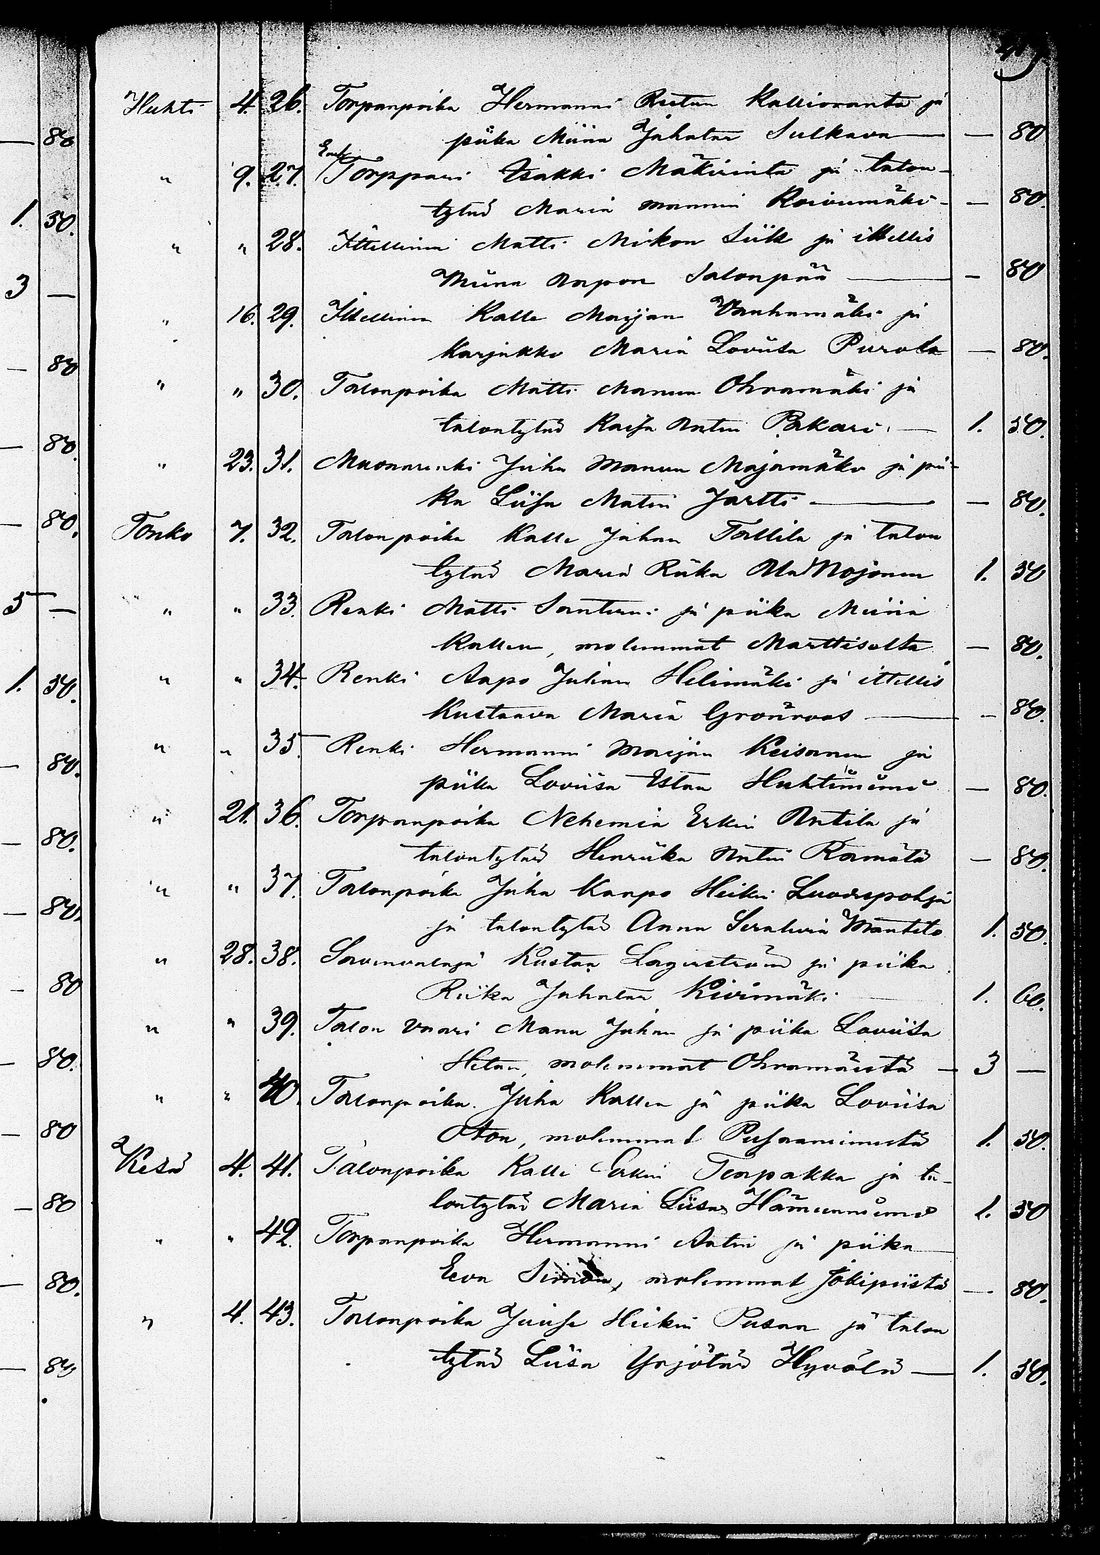 80
1. 50.
3 —
80
80.
80.
5 —
1. 50.
80.
80.
80.
80
80.
80
80
80.
80
Huhti 4. 26. Torpanpoika Hermanni Kallioranta ja
piika Miina Juhatar Sulkava — — 80
" 9. 27. Torppari Isakki Mäkirinta ja talon-
tytär Maria Mannin Koivumäki — — 80.
" " 28. Itellinen Matti Mikon Siik ja itellis
Miina Salonpää — — 80
" 16. 29. Itellinen Kalle Marjan Vanhamäki ja
Karjakko Maria Loviisa Purola — 80.
" " 30. Talonpoika Matti Manun Ohramäki ja
talontytär Kaisa Antin Pakari — 1. 50.
" 23. 31. Muonarenki Juha Manun Majamäki ja pii-
ka Liisa Matin Jartti — — 80.
Touko 7. 32. Talonpoika Kalle Juhan Tallila ja talon
tytär Maria Riika Nojonen 1. 50
" " 33. Renki Matti Santeri ja piika Miina
Kallen, molemmat Marttiselta — 80.
" " 34. Renki Aapo Juhan Helimäki ja itellis
Kustaava Maria Grönroos — — 80.
" " 35 Renki Hermanni Maijan Keisanen ja
piika Loviisa Esan Huhtiniemi — 80.
" 21. 36. Torpanpoika Nehemia Erkin Antila ja
talontytär Henriika Antin Rämälä — 80.
" " 37. Talonpoika Juha Kaapo Heikin Luodespohja
ja talontytär Anna Serahvia Mäntelo 1. 50.
" 28. 38. Savenvalaja Kustaa Lagerström ja piika
Riika Juhatar Kivimäki — 1. 60.
" " 39. Talon vaari Manu Juhan ja piika Loviisa
molemmat Ohramäestä — 3 —
" " 40. Talonpoika Juha Kallen ja piika Loviisa
Oton, molemmat 1. 50.
Kesä 4. 41. Talonpoika Kalle Erkin Torpakka ja ta-
lontytär Maria Liisa Hämeenniemi 1. 50
" " 42. Torpanpoika Hermanni Antin ja piika
Eeva Simon, molemmat Jokipiistä — 80.
" 4. 43. Talonpoika Juuse Heikin Pusaa ja talon
tytär Liisa Yrjötär Hyvölä — 1. 50.